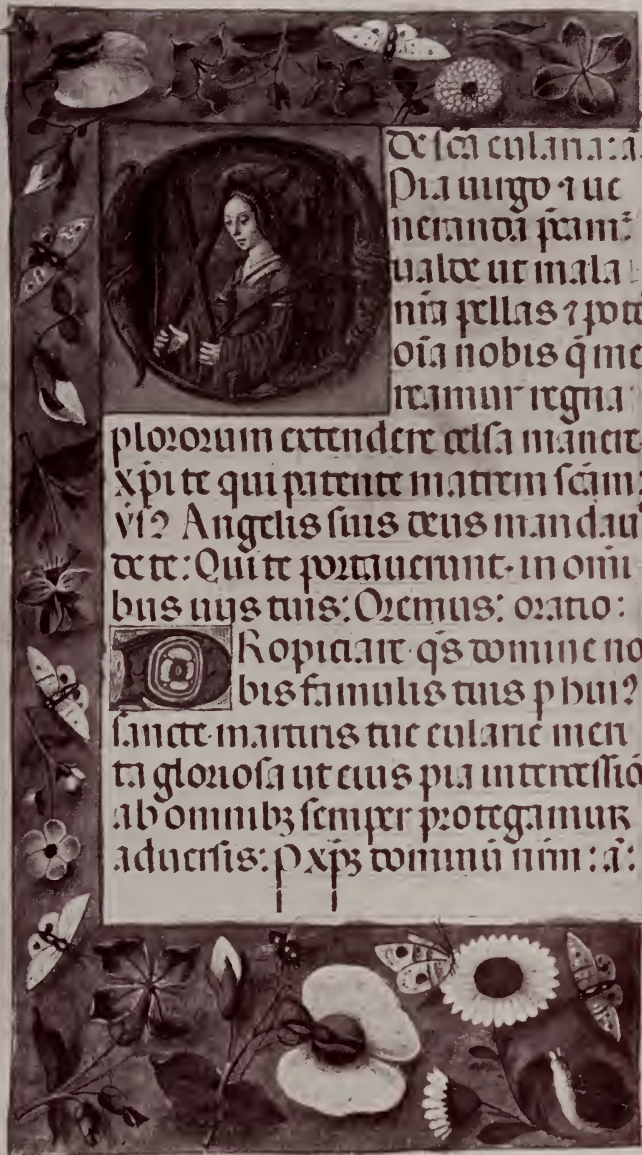 De sca̅ eularia: a̅.
Pia uirgo ⁊ ue
neranda
ualde ut mala
nr̅a pellas ⁊ pote
oı̅a nobis q̅ me
reamur regna
plororum extendere celsa manere
xp̅i te qui patente matrem sca̅m:
Angelis suis deus mandaui
de te: Qui te portauerunt. in omi
bus uijs tuis: Oremus: oratio:
Ropiciare q̅s domine no
bis famulis tuis p hui⁹
sancte martiris tue eularie meri
ta gloriosa ut eius pia intercessio
ab omnibꝫ semper protegamur
aduersis: P xp̅ꝫ dominu̅ nr̅m: a̅: